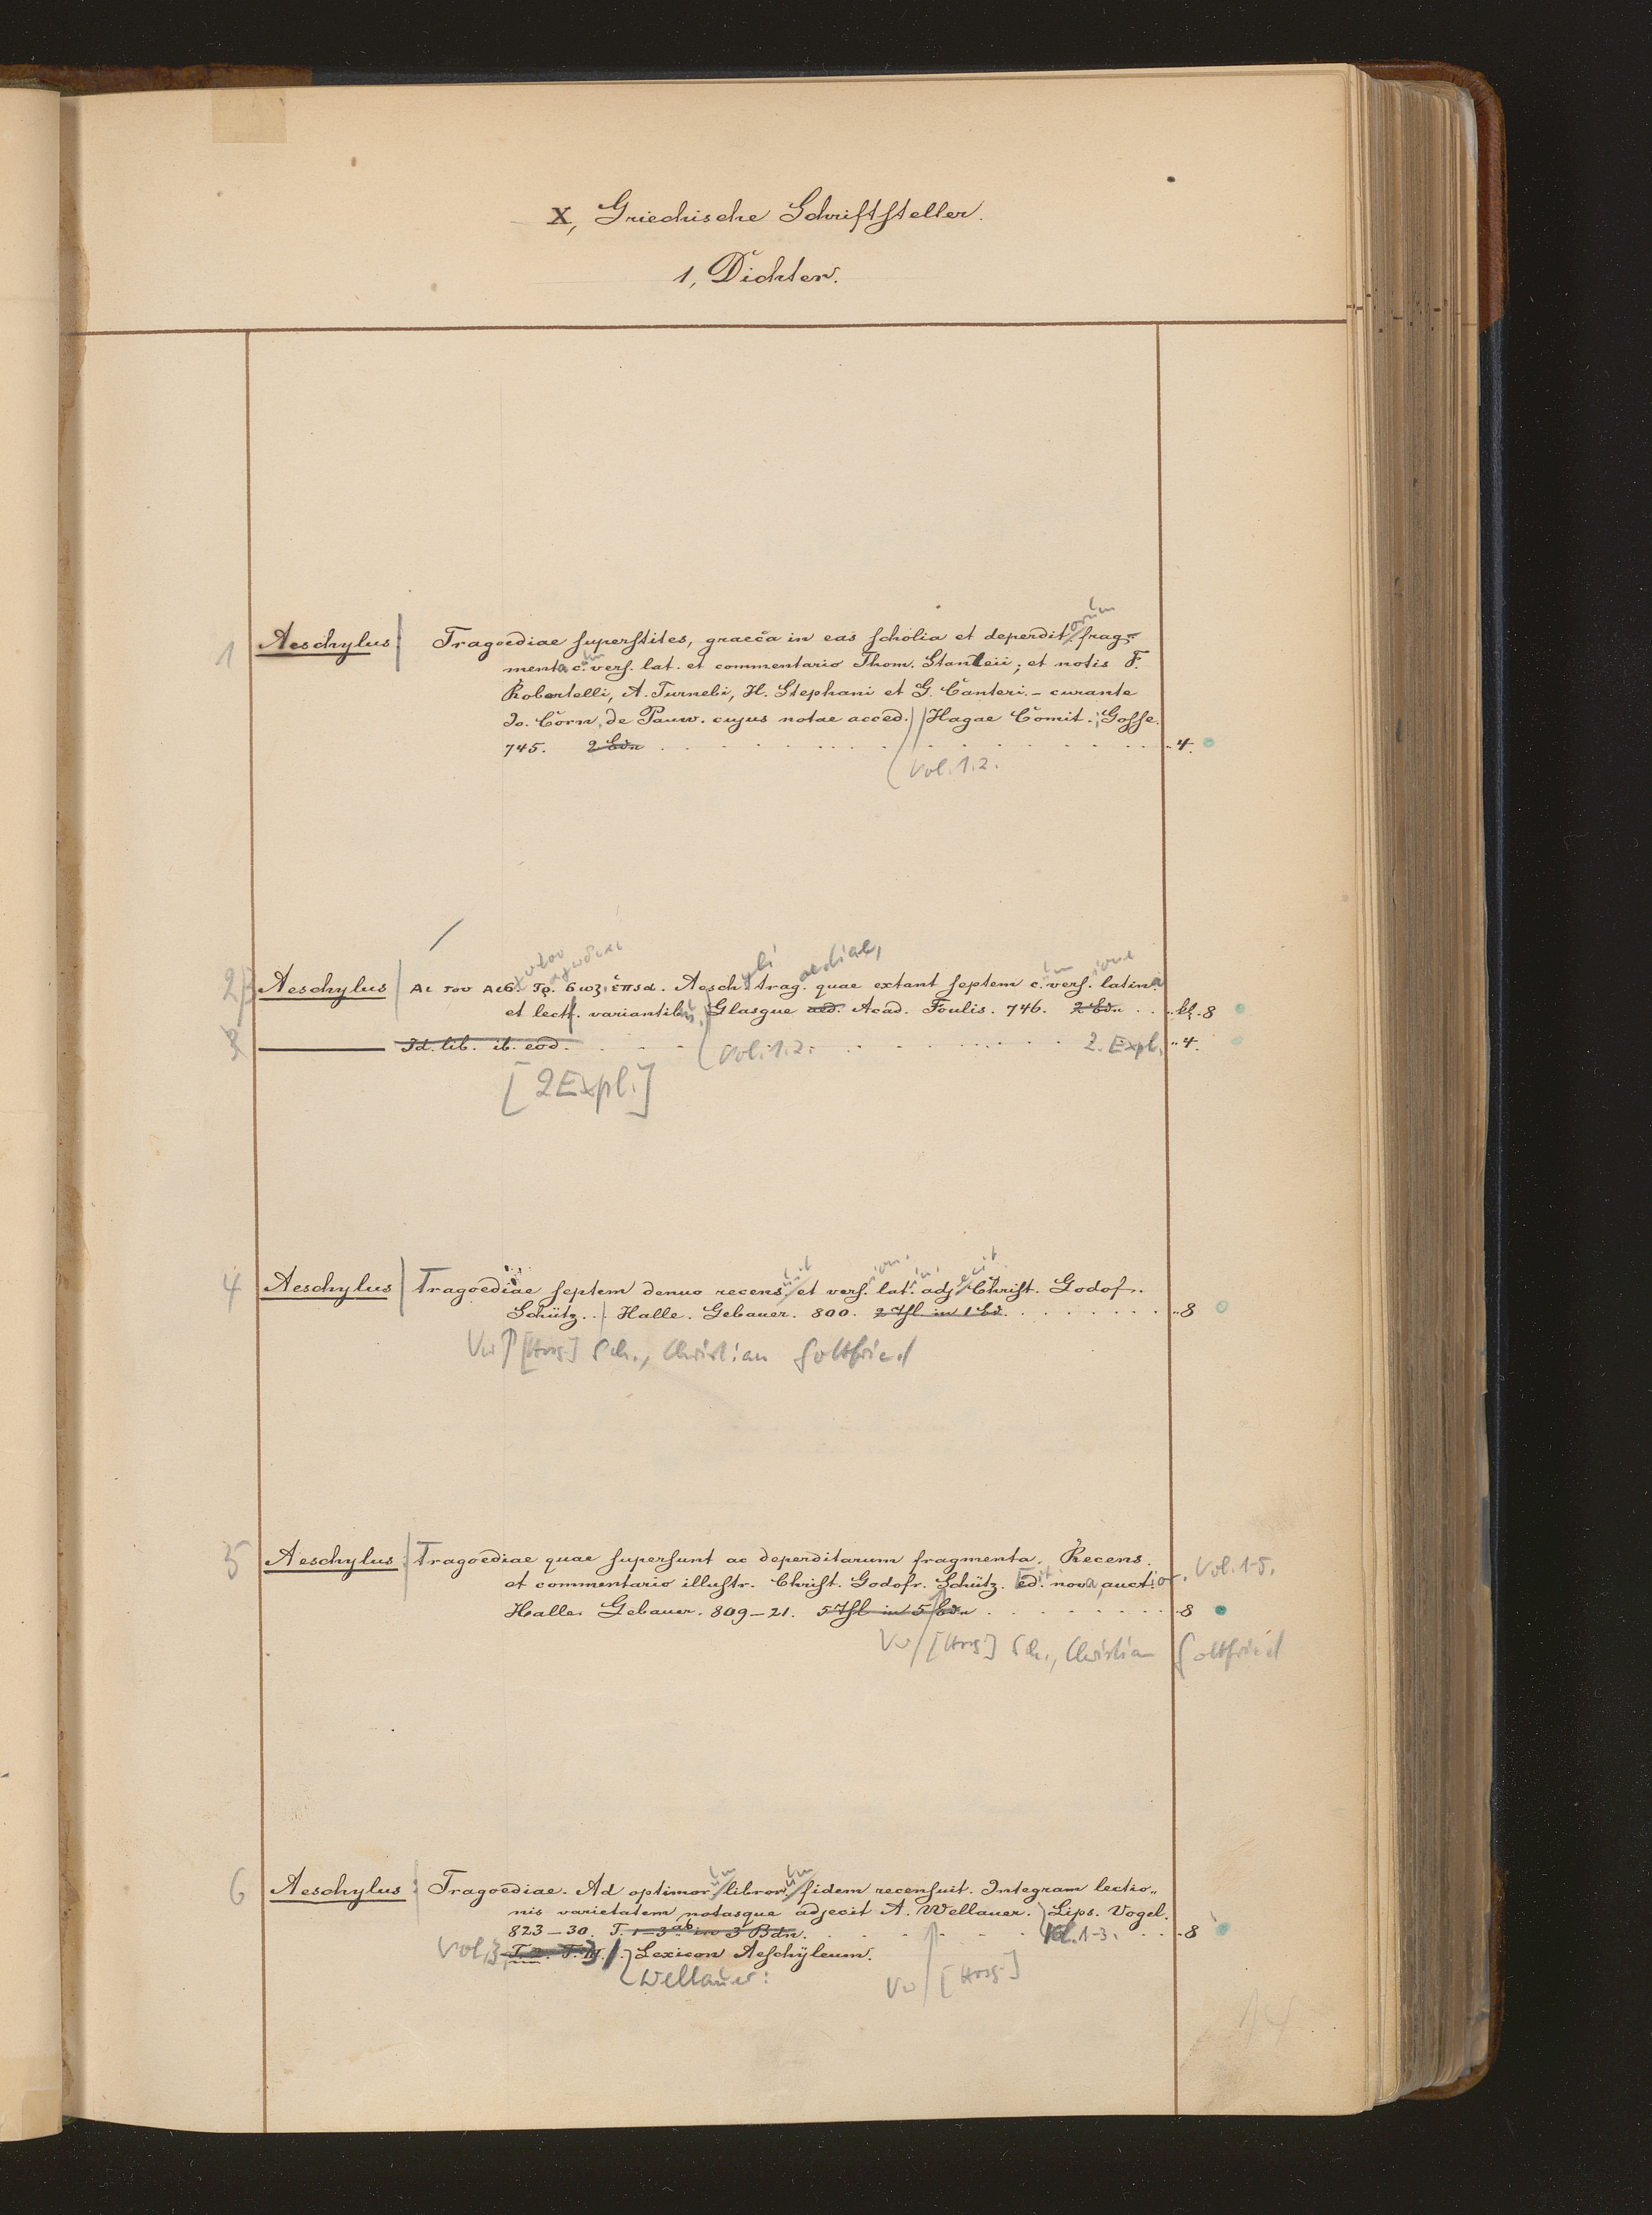 X, Griechische Schriftsteller.
1, Dichter.
1 Aeschylus Tragoediae superstites, graeca in eas scholia et deperditorum frag-
menta c. vers. lat. et commentario Thom. Stanleii; et notis F.
Robortelli, A. Turnebi, H. Stephani et G. Canteri. – curante
Jo. Corn. de Pauw. cujus notae acced. Hagae Comit.; Gosse.
745. 2 Bdn 4.
Vol. 1.2.
2/3 Aeschylus Αι του Αισ. Τρ. σωζ. επτα. Aeschyli trag. aediae, quae extant septem c. vers. latina
et lect. variantib. Glasgue aed. Acad. Foulis. 746. 2 Bdn kl. 8
Id. lib. ib. eod. Vol. 1.2. 2. Expl. 4.
[2 Expl.]
4 Aeschylus Tragoediae septem denuo recens. et vers. lat. adj. Christ. Godof.
Schütz. Halle. Gebauer. 800. 2 Thl. in 1 Bd. 8
Vw [Hrsg.] Sch., Christian Gottfried
5 Aeschylus: Tragoediae quae supersunt ac deperditarum fragmenta. Recens.
et commentario illustr. Christ. Godofr. Schütz. Ed. nova auctior. Vol. 1-5.
Halle. Gebauer. 809–21. 5 Thl in 5 Bdn 8
Vw [Hrsg.] Sch., Christian Gottfried
6 Aeschylus: Tragoediae. Ad optimor. libror. fidem recensuit. Integram lectio„
nis varietatem notasque adjecit A. Wellauer. Lips. Vogel.
823–30. T. 1–3 ab. in 3 Bdn. Vol. 1-3. 8
Vol. 3, Lexicon Aeschÿleum.
Wellauer: Vw [Hrsg.]
14